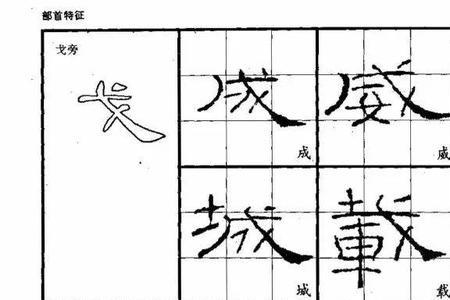 部首特征
戈旁
戈
成 威
成 威
城 載
城 载